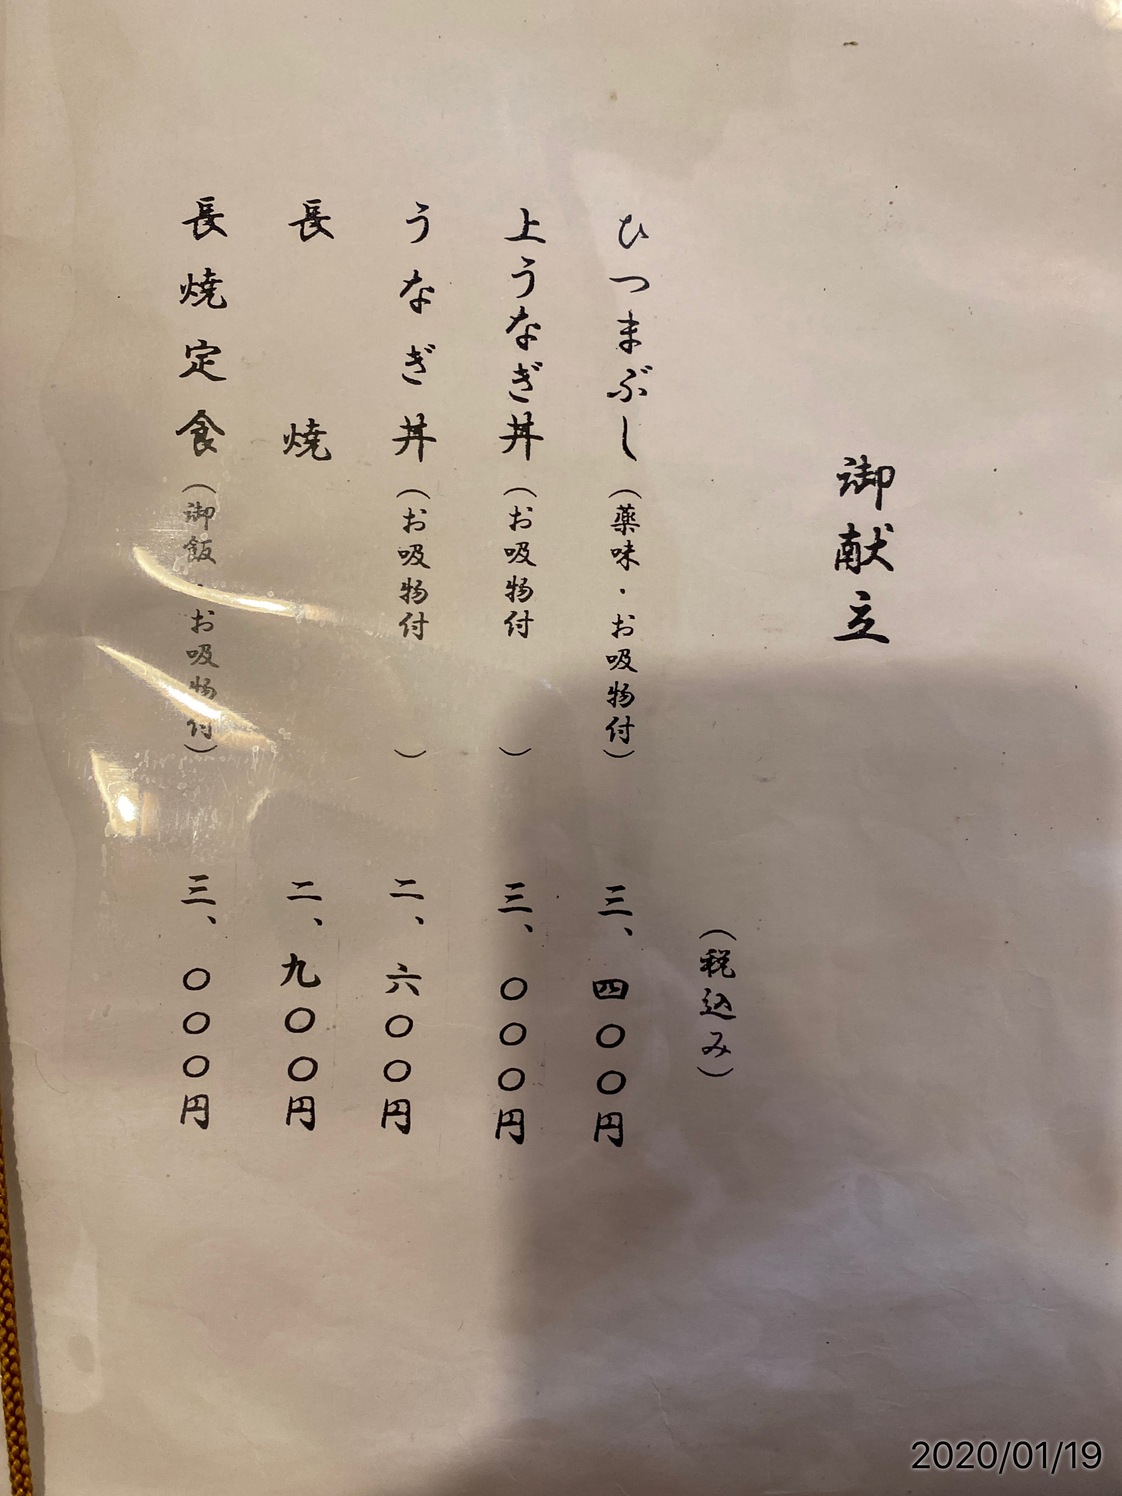 御献立
(税込み)
ひつまぶし(薬味・お吸物付) 三、四〇〇円
上うなぎ丼(お吸物付) 三、〇〇〇円
うなぎ丼(お吸物付) 二、六〇〇円
長焼 二、九〇〇円
長焼定食(御飯・お吸物付) 三、〇〇〇円
2020/01/19